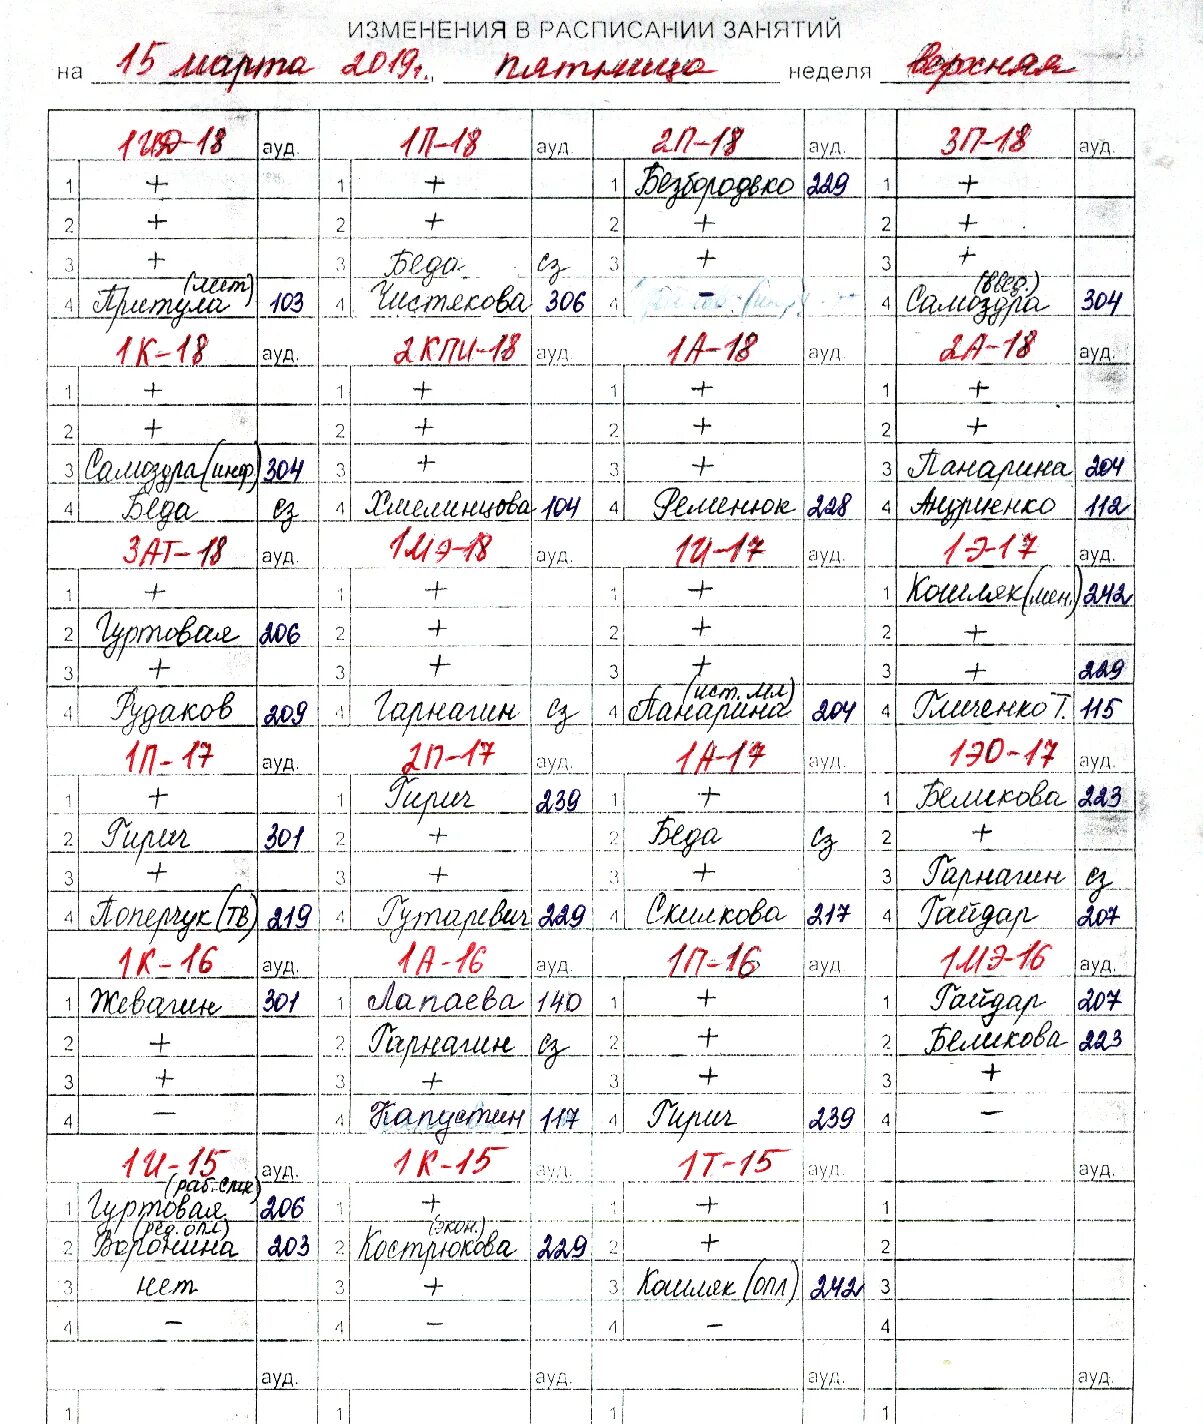 ИЗМЕНЕНИЯ В РАСПИСАНИИ ЗАНЯТИЙ
на 15 марта 2019г., пятница неделя верхняя
1ИД-18 ауд. 1П-18 ауд. 2П-18 ауд. 3П-18 ауд.
1 + 1 + 1 Безбородько 229 1 +
2 + 2 + 2 + 2 +
3 + 3 Беда сз 3 + 3 +
4 Притула (лит) 103 4 Чистякова 306 4 – 4 Самоздра (введ.) 304
1К-18 ауд. 2КПИ-18 ауд. 1А-18 ауд. 2А-18 ауд.
1 + 1 + 1 + 1 +
2 + 2 + 2 + 2 +
3 Самоздра (инф) 304 3 + 3 + 3 Панарина 204
4 Беда сз 4 Хмелинцова 104 4 Ременюк 228 4 Андриенко 112
3АТ-18 ауд. 1МЭ-18 ауд. 1И-17 ауд. 1Э-17 ауд.
1 + 1 + 1 + 1 Кошляк (мен.) 242
2 Гуртовая 206 2 + 2 + 2 +
3 + 3 + 3 + 3 + 229
4 Рудаков 209 4 Гарнагин сз 4 Панарина (ист. мл) 204 4 Гличенко Т. 115
1П-17 ауд. 2П-17 ауд. 1А-17 ауд. 1ЭО-17 ауд.
1 + 1 Гирич 239 1 + 1 Беликова 223
2 Гирич 301 2 + 2 Беда сз 2 +
3 + 3 + 3 + 3 Гарнагин сз
4 Поперчук (ТВ) 219 4 Гутаревич 229 4 Скилкова 217 4 Гайдар 207
1К-16 ауд. 1А-16 ауд. 1П-16 ауд 1МЭ-16 ауд.
1 Жевагин 301 1 Лапаева 140 1 + 1 Гайдар 207
2 + 2 Гарнагин сз 2 + 2 Беликова 223
3 + 3 + 3 + 3 +
4 – 4 Капустин 117 4 Гирич 239 4 –
1И-15 ауд. 1К-15 ауд. 1Т-15 ауд. ауд.
1 Гуртовая (раб. спец) 206 1 + 1 + 1
2 Воронина (ред. опл) 203 2 Кострюкова (экон.) 229 2 + 2
3 нет 3 + 3 Кошляк (опл) 242 3
4 – 4 – 4 – 4
ауд. ауд. ауд. ауд.
1 1 1 1